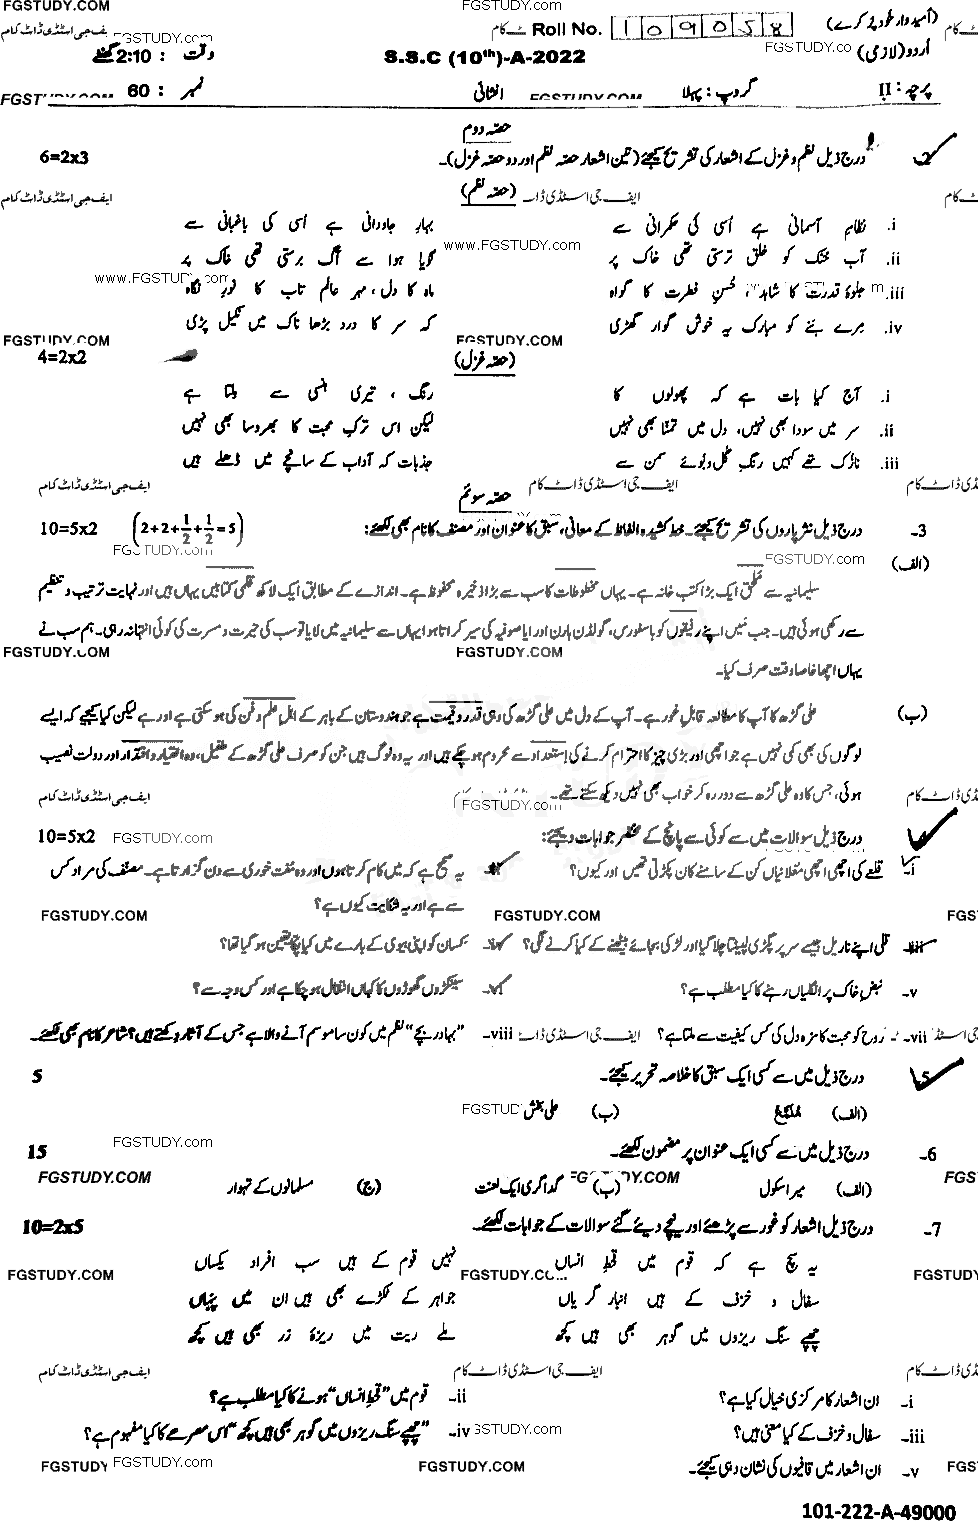 FGSTUDY.COM FGSTUDY.COM
(امیدوار خود پُر کرے) Roll No. 109058 ایف جی اسٹڈی ڈاٹ کام FGSTUDY.com
اُردو (لازمی) FGSTUDY.co S.S.C (10th)-A-2022 وقت : 2:10 گھنٹے
پرچہ : II گروپ : پہلا FGSTUDY.COM انشائی نمبر : 60 FGSTUDY.COM
حصّہ دوم
2- درج ذیل نظم و غزل کے اشعار کی تشریح کیجئے (تین اشعار حصّہ نظم اور دو حصّہ غزل)۔ 6=2x3
(حصّہ نظم) ایف جی اسٹڈی ڈاٹ کام
i. نظامِ آسمانی ہے اُسی کی حکمرانی سے بہارِ جاودانی ہے اُسی کی باغبانی سے
www.FGSTUDY.com
ii. آبِ خنک کو خلق ترستی تھی خاک پر گویا ہوا سے آگ برستی تھی خاک پر
www.FGSTUDY.com
iii. جلوۂ قدرت کا شاہد، حُسنِ فطرت کا گواہ ماہ کا دل، مہرِ عالم تاب کا نورِ نگاہ
iv. مرے بنے کو مبارک یہ خوش گوار گھڑی کہ سر کا درد بڑھا ناک میں نکیل پڑی
FGSTUDY.COM FGSTUDY.COM
(حصّہ غزل) 4=2x2
i. آج کیا بات ہے کہ پھولوں کا رنگ، تیری ہنسی سے ملتا ہے
ii. سر میں سودا بھی نہیں، دل میں تمنّا بھی نہیں لیکن اس ترکِ محبت کا بھروسا بھی نہیں
iii. نازک تھے کہیں رنگِ گل و بوئے سمن سے جذبات کہ آداب کے سانچے میں ڈھلے ہیں
ایف جی اسٹڈی ڈاٹ کام ایف جی اسٹڈی ڈاٹ کام
حصّہ سوئم
3- درج ذیل نثر پاروں کی تشریح کیجئے۔ خط کشیدہ الفاظ کے معانی، سبق کا عنوان اور مصنف کا نام بھی لکھئے: (2+2+1/2+1/2=5) 10=5x2
FGSTUDY.com FGSTUDY.com
(الف) سلیمانیہ سے ملحق ایک بڑا کتب خانہ ہے۔ یہاں مخطوطات کا سب سے بڑا ذخیرہ محفوظ ہے۔ اندازے کے مطابق ایک لاکھ قلمی کتابیں یہاں ہیں اور نہایت ترتیب و تنظیم
سے رکھی ہوئی ہیں۔ جب میں اپنے رفیقوں کو باسفورس، گولڈن ہارن اور ایا صوفیہ کی سیر کراتا ہوا یہاں سے سلیمانیہ میں لایا تو سب کی حیرت و مسرت کی کوئی انتہا نہ رہی۔ ہم سب نے
FGSTUDY.COM FGSTUDY.COM
یہاں اچھا خاصا وقت صرف کیا۔
(ب) علی گڑھ کا آپ کا مطالعہ قابلِ غور ہے۔ آپ کے دل میں علی گڑھ کی وہی قدر و قیمت ہے جو ہندوستان کے باہر کے اہلِ علم و فن کی ہو سکتی ہے اور ہے لیکن کیا کیجیے کہ ایسے
لوگوں کی بھی کمی نہیں ہے جو اچھی اور بڑی چیز کا احترام کرنے کی استعداد سے محروم ہو چکے ہیں اور یہ وہ لوگ ہیں جن کو صرف علی گڑھ کے طفیل، وہ اختیار و اقتدار اور دولت نصیب
ہوئی، جس کا وہ علی گڑھ سے دور رہ کر خواب بھی نہیں دیکھ سکتے تھے۔ ایف جی اسٹڈی ڈاٹ کام
FGSTUDY.com
درج ذیل سوالات میں سے کوئی سے پانچ کے مختصر جوابات دیجئے: 10=5x2 FGSTUDY.com
i- قلعے کی اچھی اچھی مغلانیاں کن کے سامنے کان پکڑتی تھیں اور کیوں؟ یہ صحیح ہے کہ میں کام کرتا ہوں اور وہ مفت خوری سے دن گزارتا ہے۔ مصنف کی مراد کس
سے ہے اور یہ شکایت کیوں ہے؟
FGSTUDY.COM FGSTUDY.COM FGS
iii- قلی اپنے ناریل جیسے سر پر پگڑی لپیٹتا چلا گیا اور لڑکی بجائے بیٹھنے کے کیا کرنے لگی؟ کسان کو اپنی بیوی کے بارے میں کیا یقین ہو گیا تھا؟
v- نبضِ خاک پر انگلیاں رہنے کا کیا مطلب ہے؟ سینکڑوں گھوڑوں کا کہاں انتقال ہو چکا ہے اور کس وجہ سے؟
vii- روح کو محبت کا مزہ دل کی کس کیفیت سے ملتا ہے؟ ایف جی اسٹڈی ڈاٹ viii- "بہادر بچے" نظم میں کون سا موسم آنے والا ہے جس کے آثار دِکھتے ہیں؟ شاعر کا نام بھی لکھئے۔
5- درج ذیل میں سے کسی ایک سبق کا خلاصہ تحریر کیجئے۔ 5
(الف) ملمّع (ب) علی بخش FGSTUD
FGSTUDY.com
6- درج ذیل میں سے کسی ایک عنوان پر مضمون لکھئے۔ 15
FGSTUDY.COM FGS
(الف) میرا سکول (ب) گداگری ایک لعنت (ج) مسلمانوں کے تہوار
7- درج ذیل اشعار کو غور سے پڑھئے اور نیچے دیئے گئے سوالات کے جوابات لکھئے۔ 10=2x5
یہ سچ ہے کہ قوم میں قحطِ انساں نہیں قوم کے ہیں سب افراد یکساں
FGSTUDY.COM FGSTUDY.CO FGSTUDY
سفال و خزف کے ہیں انبار گر یاں جواہر کے ٹکڑے بھی ہیں ان میں پنہاں
چھپے سنگ ریزوں میں گوہر بھی ہیں کچھ ملے ریت میں ریزۂ زر بھی ہیں کچھ
ایف جی اسٹڈی ڈاٹ کام ایف جی اسٹڈی ڈاٹ کام
i- ان اشعار کا مرکزی خیال کیا ہے؟ ii- قوم میں "قحطِ انساں" ہونے کا کیا مطلب ہے؟
iii- سفال و خزف کے کیا معنی ہیں؟ iv- "چھپے سنگ ریزوں میں گوہر بھی ہیں کچھ" اس مصرعے کا کیا مفہوم ہے؟ GSTUDY.com
v- ان اشعار میں قافیوں کی نشان دہی کیجئے۔ FGSTUDY.COM FGSTUDY FGSTUDY.com
101-222-A-49000